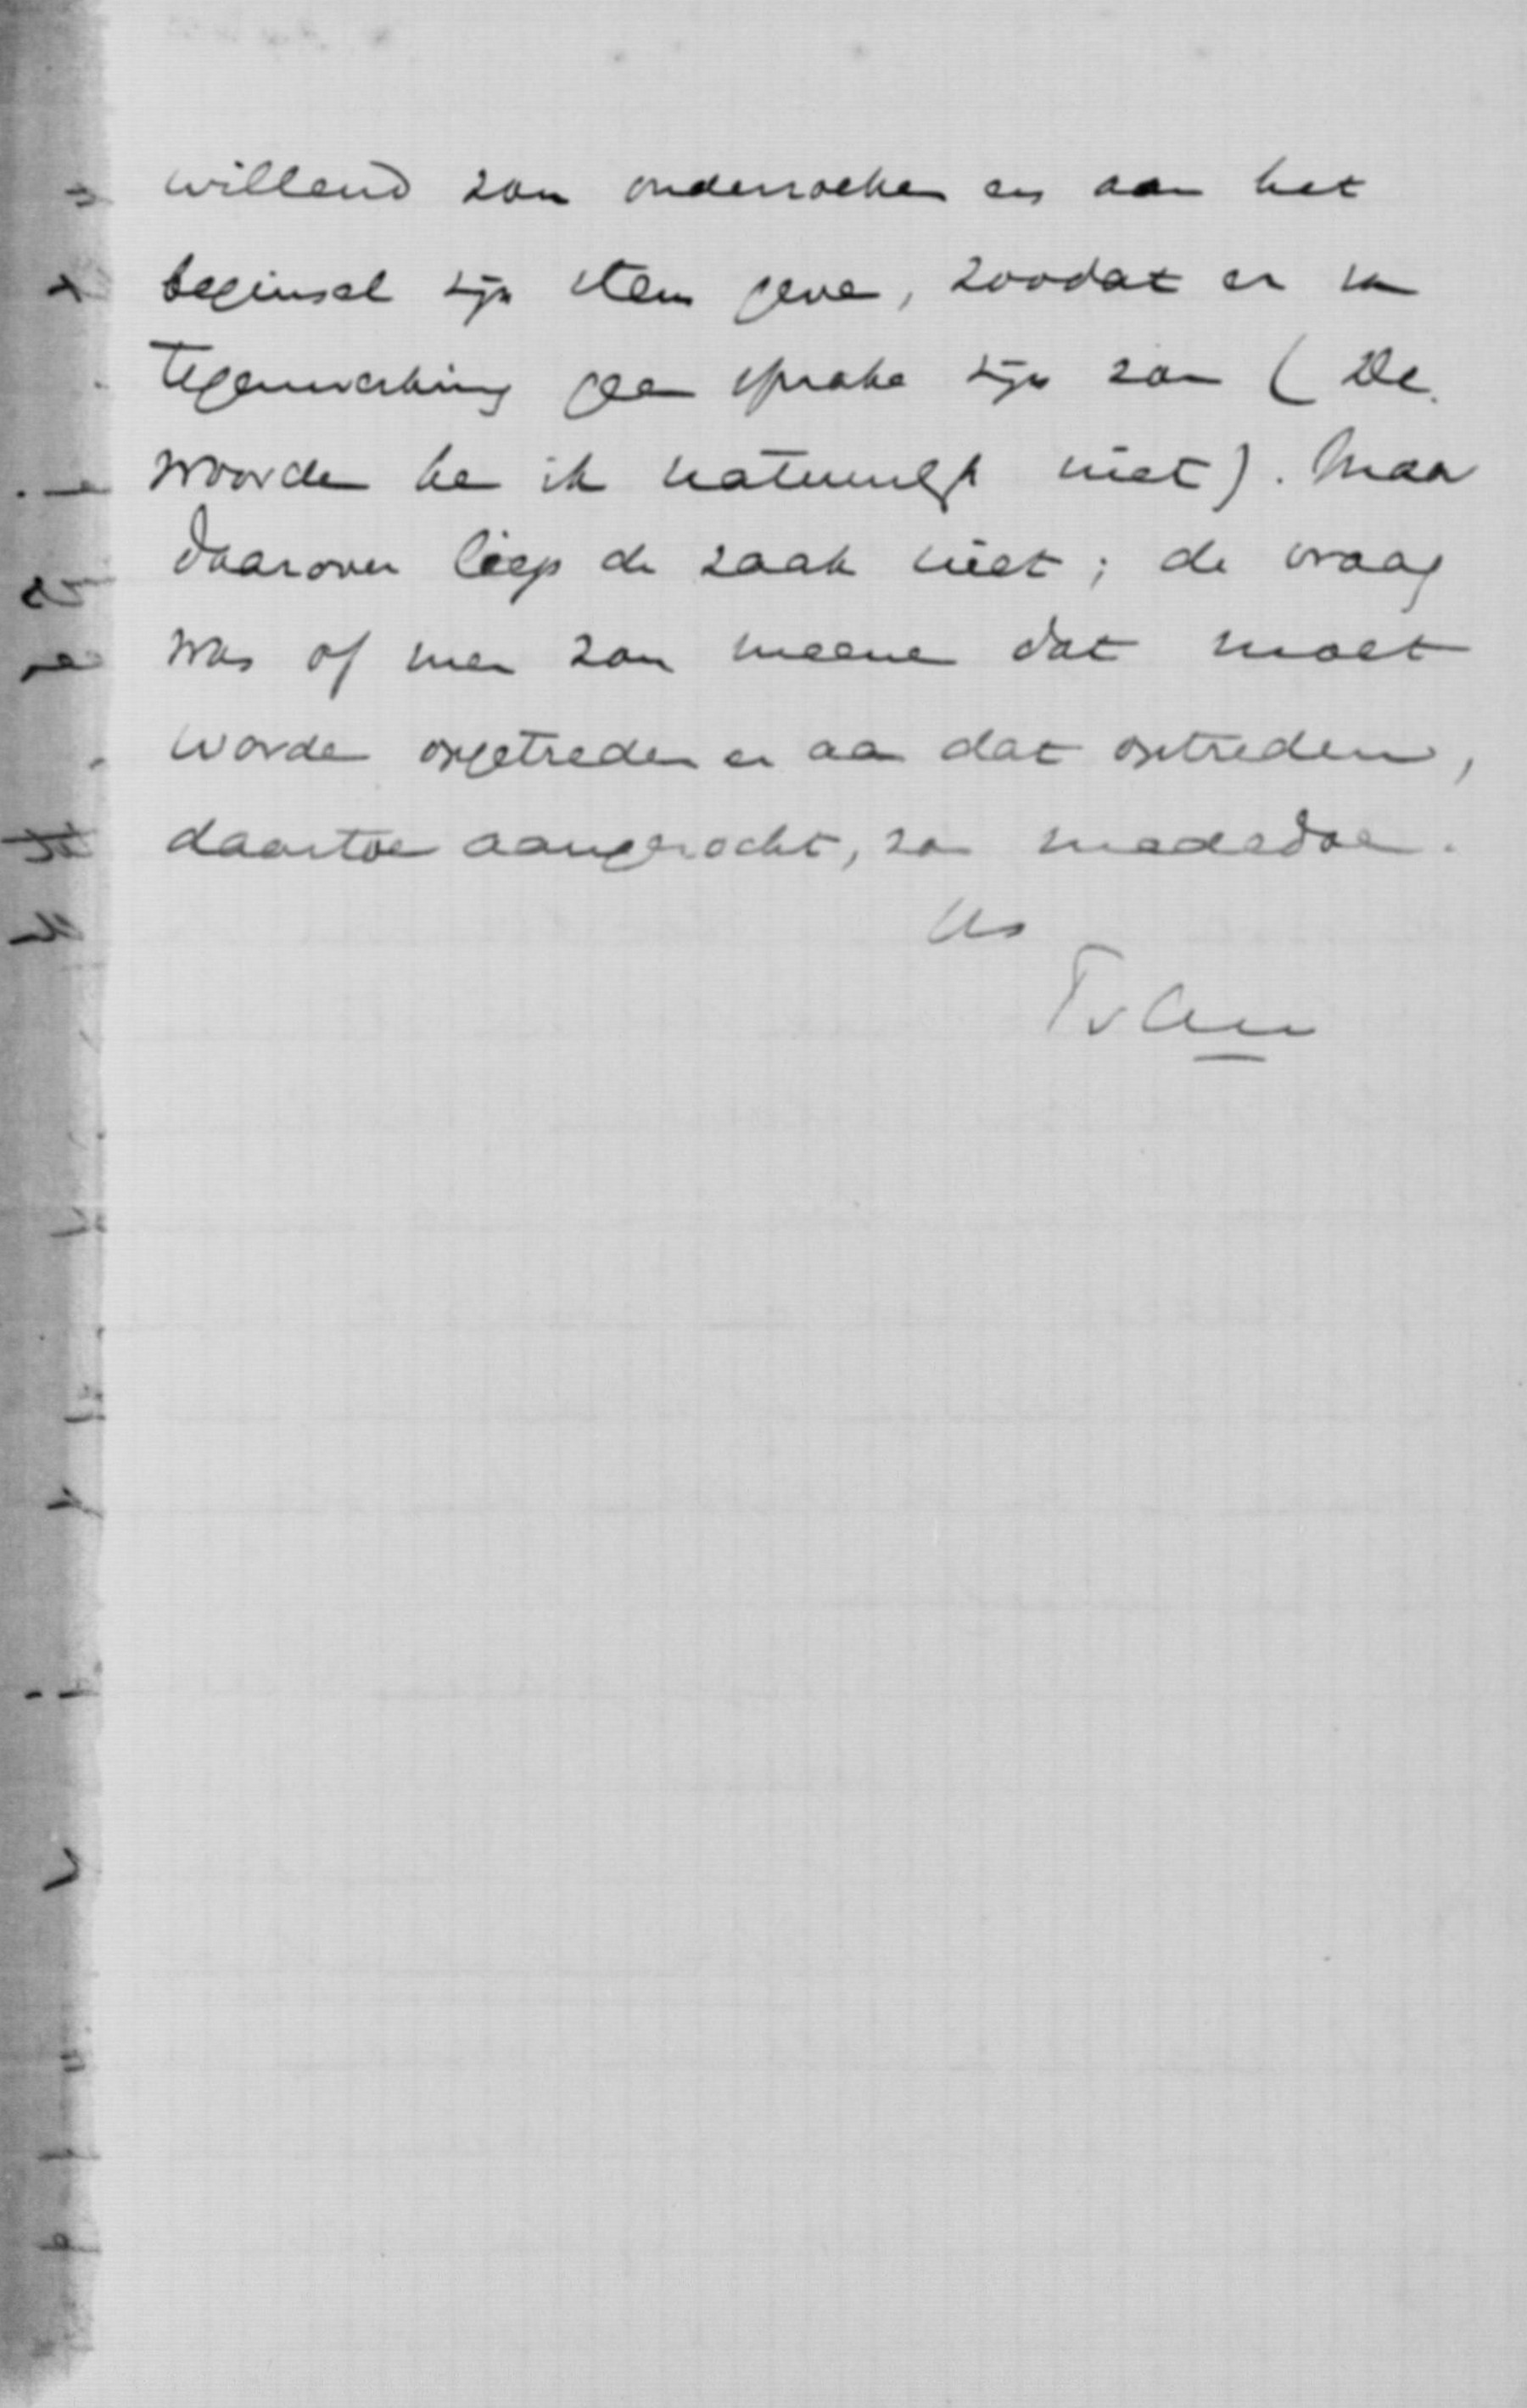 willend zou onderzoeken en aan het
beginsel zijn stem geven, zoodat er van
tegenwerking geen sprake zijn zou (De
woorden ken ik natuurlijk niet). Maar
daarover liep de zaak niet; de vraag
was of men zou meenen dat moet
worden opgetreden en aan dat optreden,
daartoe aangezocht, zou mededoen.
Us
TvAm